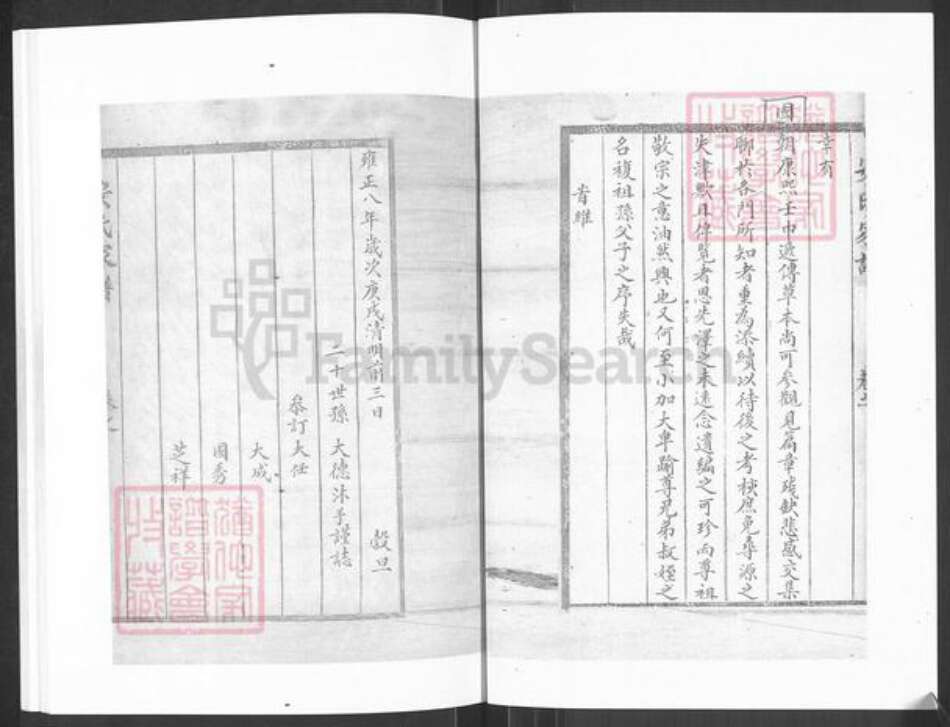 幸有
國朝康熙壬申遞傳草本尚可參觀見篇章殘缺悲感交集
聊於各門所知者重為添續以待後之考核庶免尋源之
失津歟且俾覽者思先澤之未遠念遺編之可珍而尊祖
敬宗之意油然興也又何至小加大卑踰尊兄弟叔姪之
名複祖孫父子之序失哉
肯維
卷之
雍正八年歲次庚戌清明前三日 穀旦
二十世孫 大德沐手謹誌
叅訂大任
大成
國秀
芝祥
氏家譜
卷之
FamilySearch